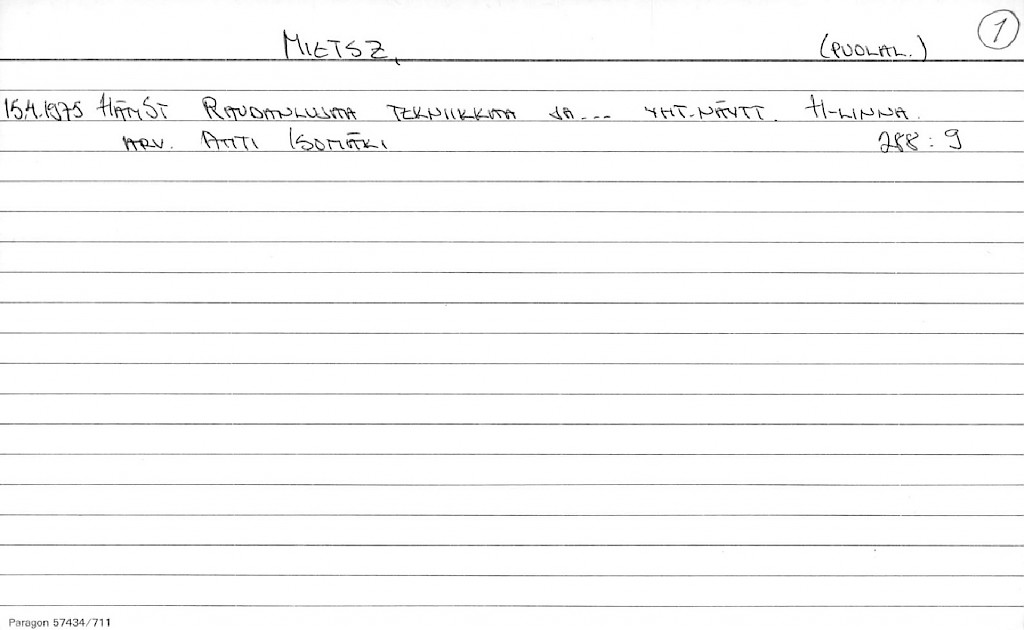 MIETSZ, (PUOLAL.) 1
15.4.1975 HÄMST RAUDANLUJAA TEKNIIKKAA JA... YHT.NÄYTT. H-LINNA.
ARV. ATTI ISOMÄKI 288:9
Paragon 57434/711